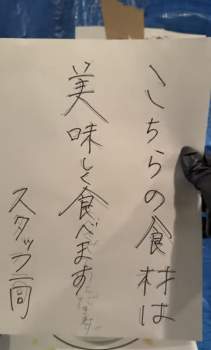 こちらの食材は
美味しく食べます
スタッフ一同